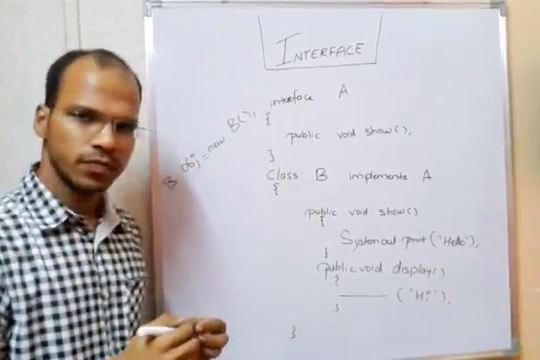 INTERFACE
interface A
{
public void show();
}
B obj = new B();
Class B implements A
{
public void show()
{
System out print ("Hello");
}
public void display()
{
("Hi");
}
}